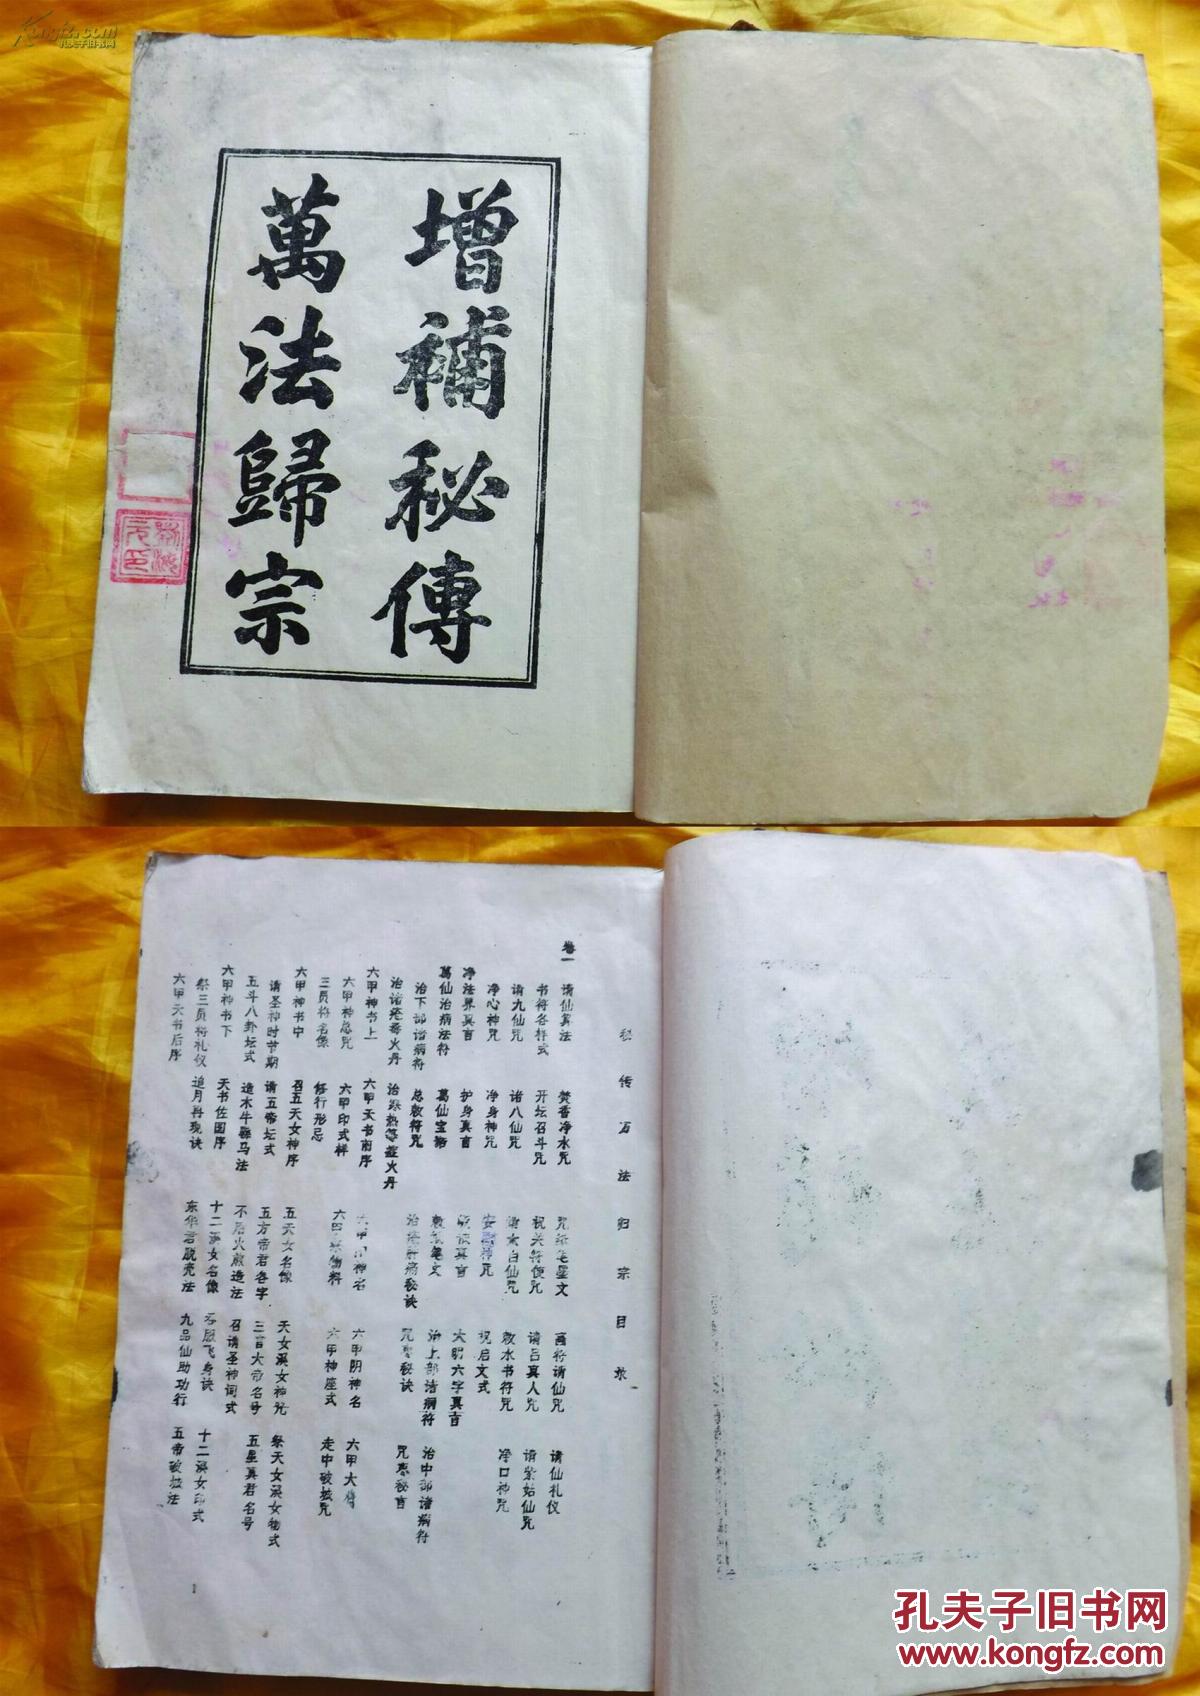 Kongfz.com
孔夫子旧书网
增補秘傳
萬法歸宗
秘传万法归宗目录
卷一
请仙箕法
焚香净水咒
画符请仙咒
请仙礼仪
书符各样式
开坛召斗咒
祝关符使咒
请吕真人咒
请紫姑仙咒
请九仙咒
诸八仙咒
请太白仙咒
敕水书符咒
净口神咒
净心神咒
净身神咒
安土神咒
祝启文式
净法界真言
护身真言
大明六字真言
葛仙治病法符
葛仙宝诰
敕纸笔文
治上部诸病符
治中部诸病符
治下部诸病符
总敕符咒
咒枣秘诀
咒枣秘言
治诸疮毒火丹
六甲神书上
六甲天书前序
六甲阴神名
六甲大
六甲神总咒
六甲印式样
六甲神座式
走中破拔咒
三员将名像
修行形忌
六甲神书中
召五天女神序
五天女名像
天女溪女神咒
祭天女溪女物式
请圣神时节期
请五帝坛式
五方帝君名字
三官大帝名号
五星真君名号
五斗八卦坛式
造木牛骡马法
召请圣神词式
六甲神书下
天书佐国序
十二溪女名像
十二溪女印式
祭三员将礼仪
追月再现诀
东华君脱壳法
九品仙助功行
五帝破拔法
六甲天书后序
1
孔夫子旧书网
www.kongfz.com